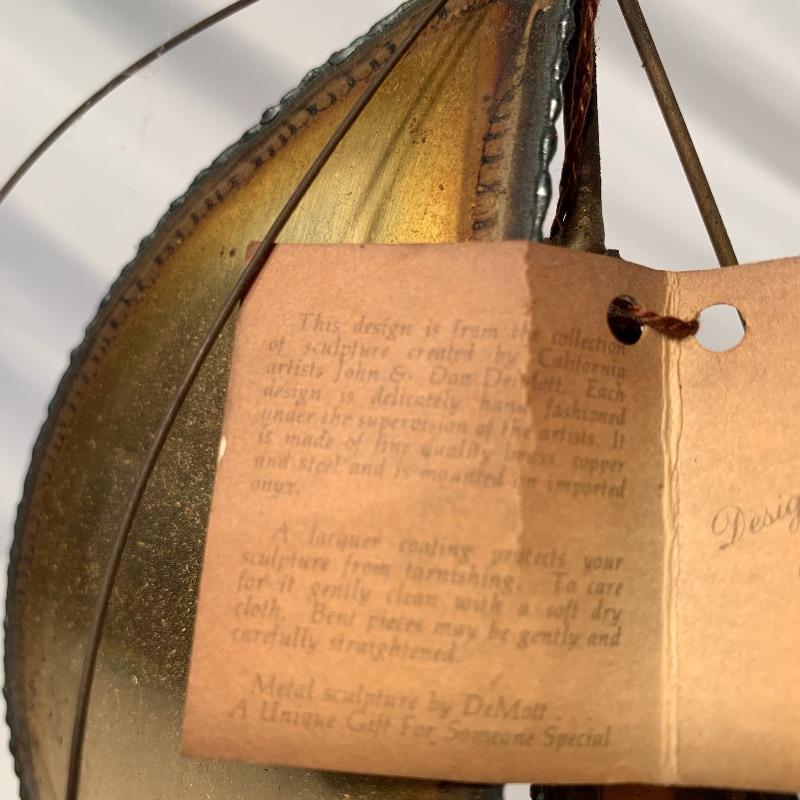 This design is from the collection
of sculpture created by California
artists John & Don DeMott. Each
design is delicately hand fashioned
under the supervision of the artists. It
is made of fine quality brass, copper
and steel and is mounted on imported
onyx.
A lacquer coating protects your
sculpture from tarnishing. To care
for it gently clean with a soft dry
cloth. Bent pieces may be gently and
carefully straightened.
Metal sculpture by DeMott
A Unique Gift For Someone Special
Desig